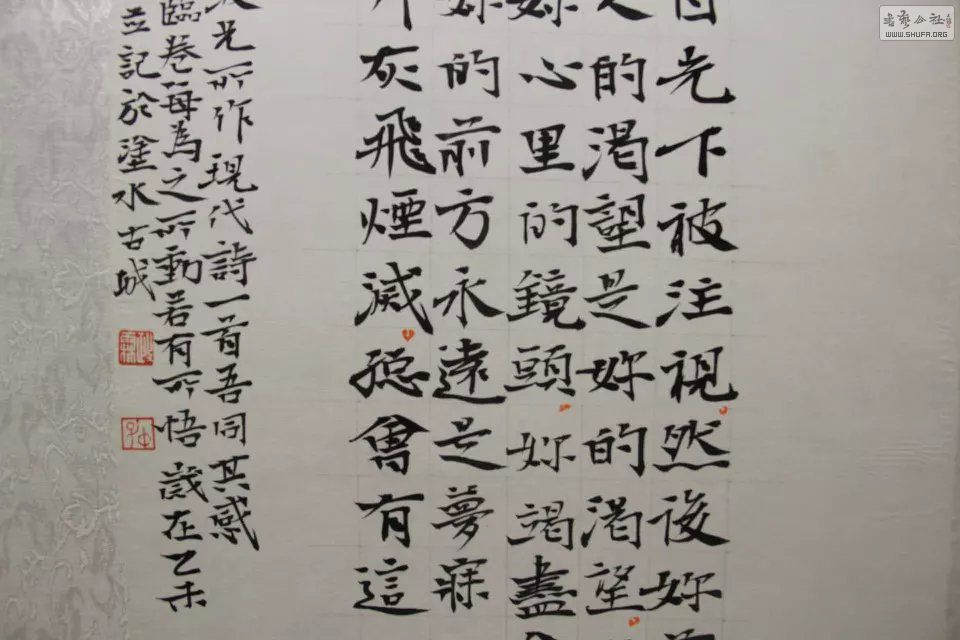 目光下被注視然後妳
的渴望是妳的渴望
妳心里的鏡頭妳竭盡
妳的前方永遠是夢寐
灰飛煙滅總會有這
光所作現代詩一首吾同其感
臨卷每為之所動若有所悟 歲在乙未
並記於塗水古城
書藝公社
WWW.SHUFA.ORG